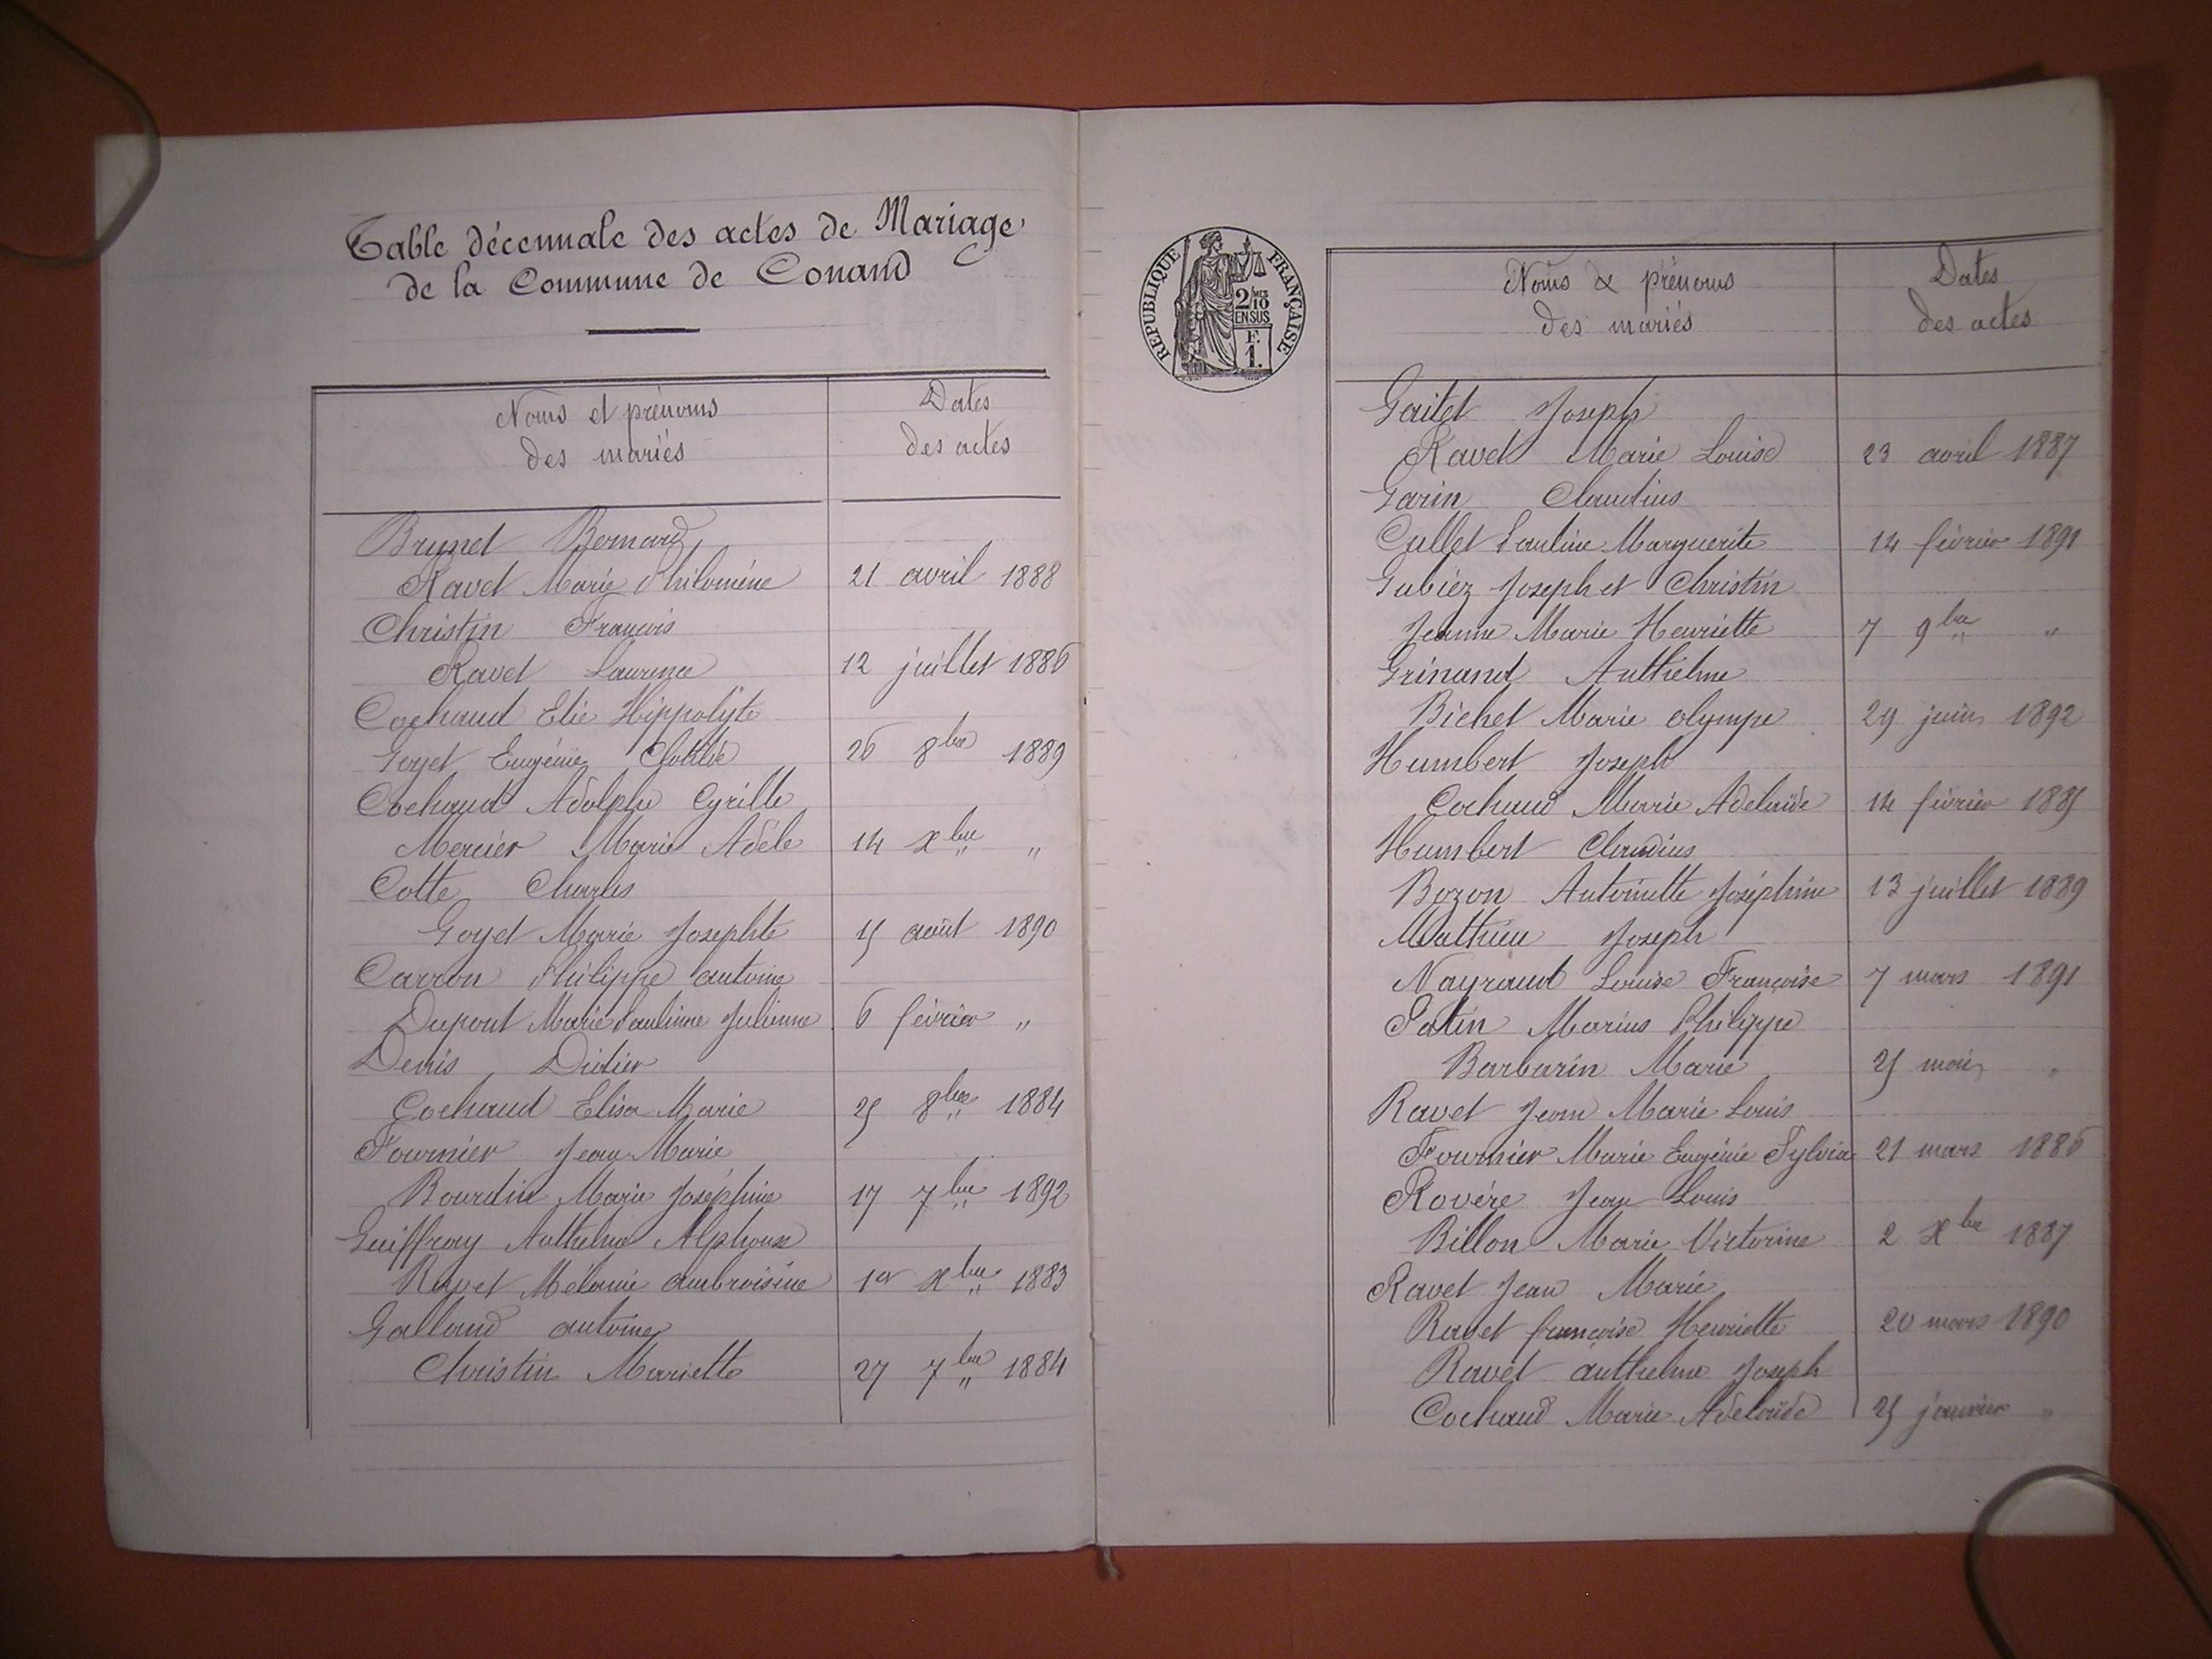 Table décennale des actes de Mariage
de la Commune de Conand
Noms et prénoms
des mariés
Dates
des actes
Brunet Bernard
Ravet Marie Philomène 21 avril 1888
Christin François
Ravet Laurence 12 juillet 1886
Cochaud Elie Hippolyte
Goyet Eugénie Clotilde 26 8bre 1889
Cochaud Adolphe Cyrille
Mercier Marie Adèle 14 Xbre "
Cotte Charles
Goyet Marie Josephte 15 août 1890
Carron Philippe antoine
Dupont Marie Paulinne Julienne 6 février "
Denis Didier
Cochaud Elisa Marie 25 8bre 1884
Fournier Jean Marie
Bourdin Marie Joséphine 17 7bre 1892
Guiffray Anthelme Alphonse
Ravet Mélanie ambroisine 1er Xbre 1883
Galland antoine
Christin Mariette 27 7bre 1884
RÉPUBLIQUE FRANÇAISE
2/10 MES
EN SUS
F.
1.
Noms & prénoms
des mariés
Dates
des actes
Gaitet Joseph
Ravet Marie Louise 23 avril 1887
Garin Claudius
Cullet Pauline Marguerite 14 février 1891
Gubiez Joseph et Christin
Jeanne Marie Henriette 7 9bre "
Grinand Anthelme
Bichet Marie olympe 29 juin 1892
Humbert Joseph
Cochaud Marie Adelaïde 14 février 1885
Humbert Claudius
Bozon Antoinette Joséphine 13 juillet 1889
Mathieu Joseph
Nayraud Louise Françoise 7 mars 1891
Patin Marius Philippe
Barbarin Marie 25 mai "
Ravet Jean Marie Louis
Fournier Marie Eugénie Sylvie 21 mars 1886
Rovére Jean Louis
Billon Marie Victorine 2 Xbre 1887
Ravet Jean Marie
Ravet françoise Henriette 20 mars 1890
Ravet anthelme Joseph
Cochaud Marie Adelaïde 25 janvier "